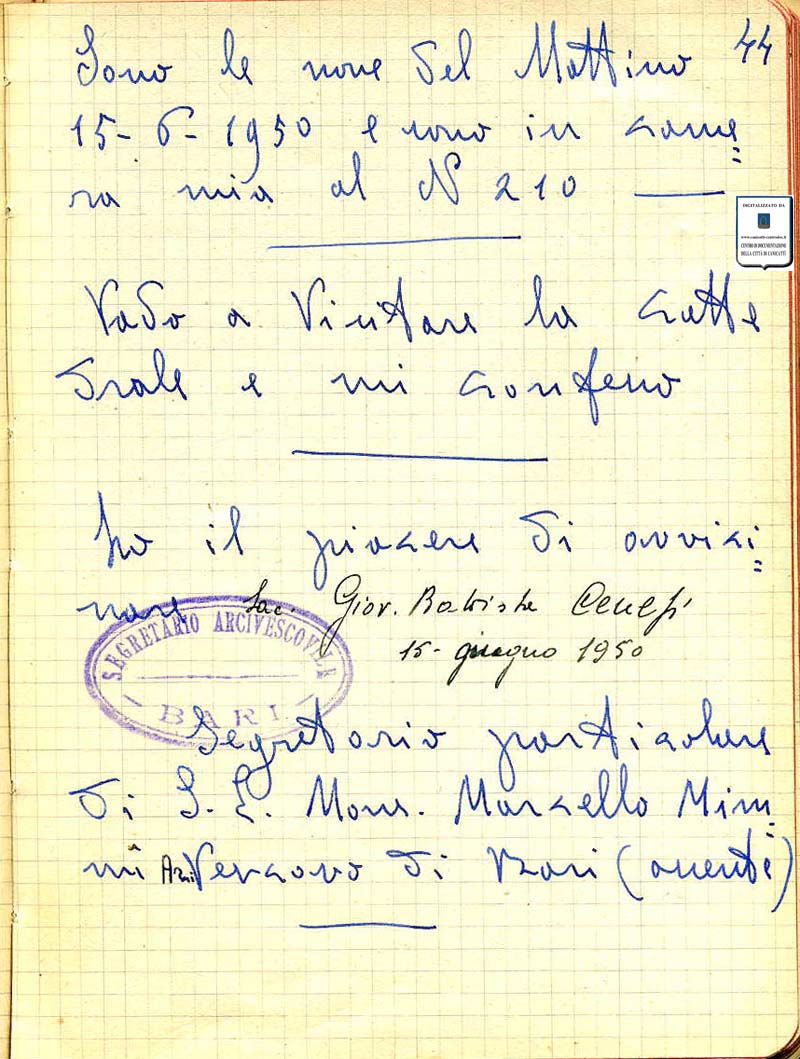 44
Sono le nove del Mattino
15-6-1950 e sono in came=
ra mia al N 210 —
Vado a Visitare la catte
drale e mi confesso
ho il piacere di avvici=
nare Sac. Giov. Battista
15- giugno 1950
SEGRETARIO ARCIVESCOVILE
BARI
Segretario particolare
di S. E. Mons. Marcello Mim=
mi ArciVescovo di Bari (assente)
DIGITALIZZATO DA
CENTRO DI DOCUMENTAZIONE
DELLA CITTÀ DI CANICATTÌ